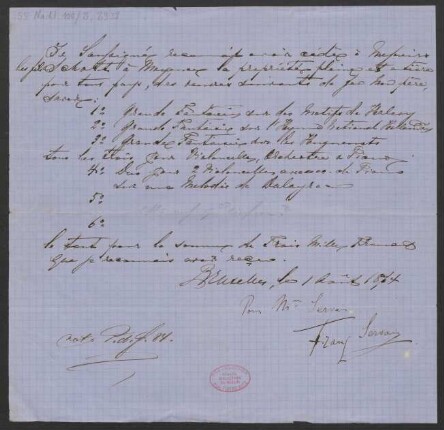 Je soussigné, reconnais avoir cédé à Messieurs
les fils de Schott à Mayence la propriété pleine et entière
pour tous pays, des œuvres suivantes de feu mon père,
savoir:
1º Grande Fantaisie sur des Motifs de Halevy
2º Grande Fantaisie sur l'Hymne National Hollandais
3º Grande Fantaisie sur les Huguenots
tous les trois pour Violoncelle, Orchestre ou Piano
4º Duo pour 2 Violoncelles avec acc. de Piano
sur une Melodie de Dalayrac
5º
6º
le tout pour la somme de Trois Mille Francs
que je reconnais avoir reçue.
Bruxelles, le 1 Août 1874
Pour Mme Servais
Franz Servais